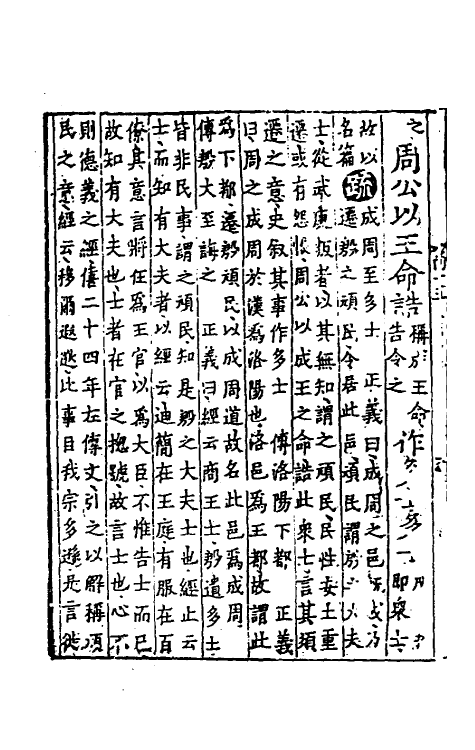 之周公以王命誥稱成王命告令之作多士即衆士
故以名篇疏成周至多士 正義曰成周之邑既成乃
遷殷之頑民令居此邑頑民謂殷之大夫
士從武庚叛者以其無知謂之頑民民性安土重
遷或有怨恨周公以成王之命誥此衆士言其須
遷之意史叙其事作多士 傳洛陽下都 正義
曰周之成周於漢爲洛陽也洛邑爲王都故謂此
爲下都遷殷頑民以成周道故名此邑爲成周
傳殷大至誨之 正義曰經云商王士殷遺多士
皆非民事謂之頑民知是殷之大夫士也經止云
士而知有大夫者以經云迪簡在王庭有服在百
僚其意言將任爲王官以爲大臣不惟告士而已
故知有大夫也士者在官之揔號故言士也心不
則德義之經僖二十四年左傳文引之以解稱頑
民之意經云移爾遐逖比事臣我宗多遜是言徙